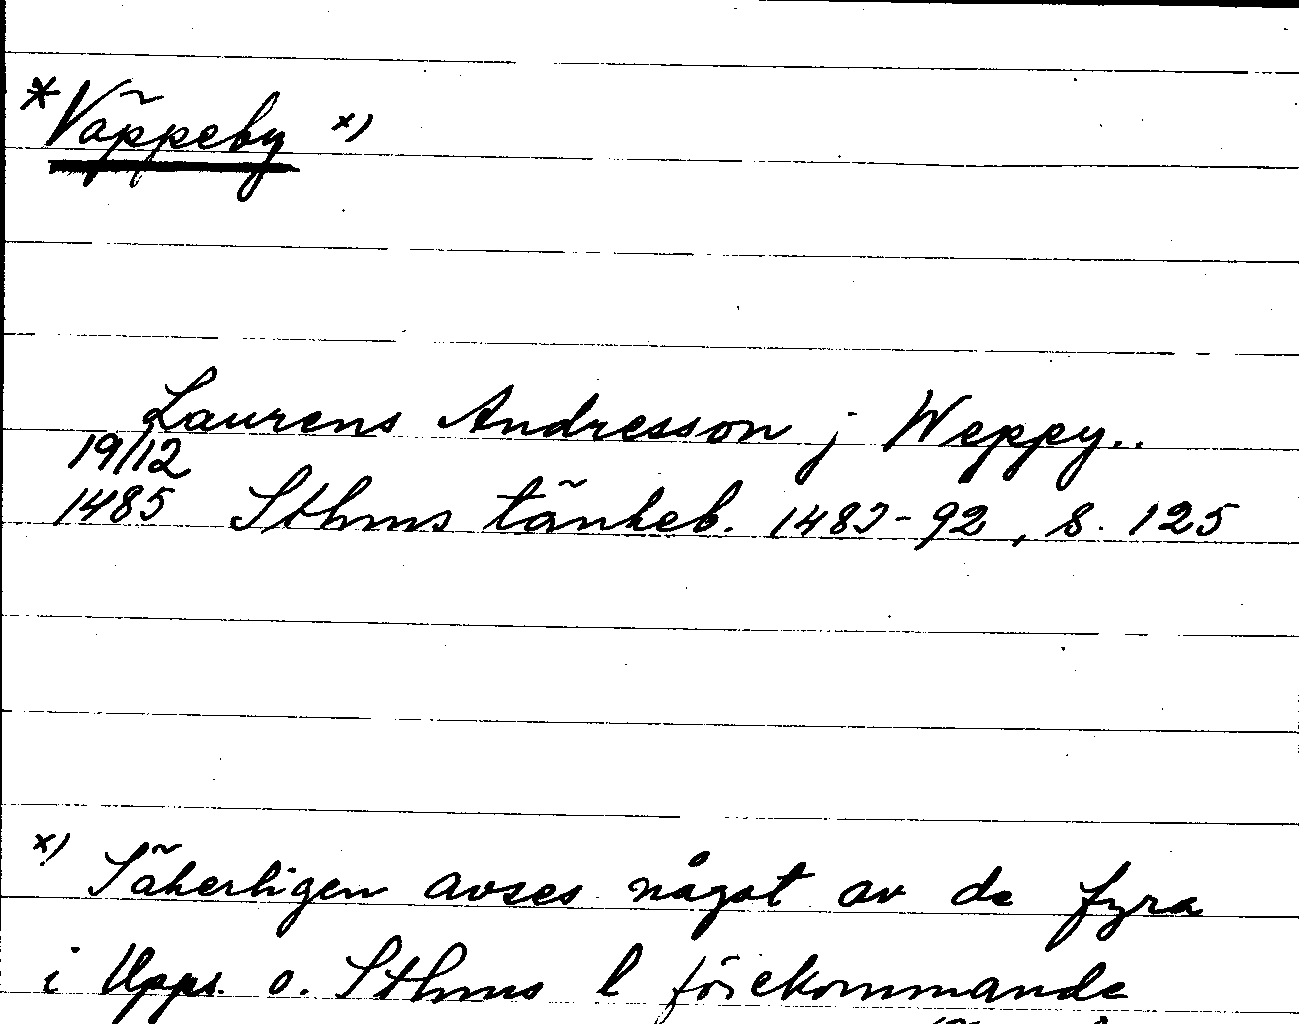 *Väppeby x)
Laurens Andresson j Weppy..
19/12
1485 Sthms tänkeb. 1483-92, s. 125
x) Säkerligen avses något av de fyra
i Upps. o. Sthms l förekommande